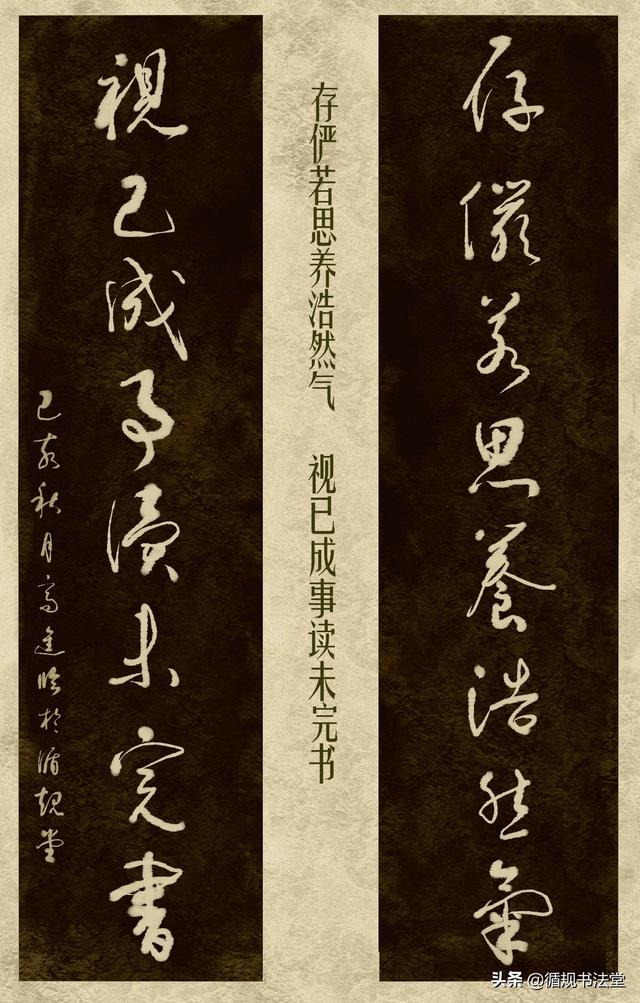 存儼若思養浩然氣
存俨若思养浩然气 视已成事读未完书
視已成事讀未完書
己亥秋月高進臨於循規堂
头条 @循规书法堂